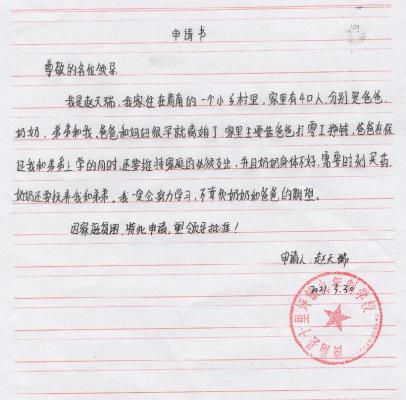 申请书
尊敬的各位领导
我是赵天瑞,我家住在商南的一个小乡村里,家里有4口人,分别是爸爸,
奶奶,弟弟和我,爸爸和妈妈很早就离婚了家里主要靠爸爸打零工挣钱,爸爸在保
证我和弟弟上学的同时,还要维持家庭的必须支出,并且奶奶身体不好,需要时刻买药,
奶奶还要抚养我和弟弟。我一定会努力学习,不辜负奶奶和爸爸的期望。
因家庭贫困,特此申请,望领导批准!
申请人:赵天瑞
2021.3.30
商南县十里坪镇九年制学校